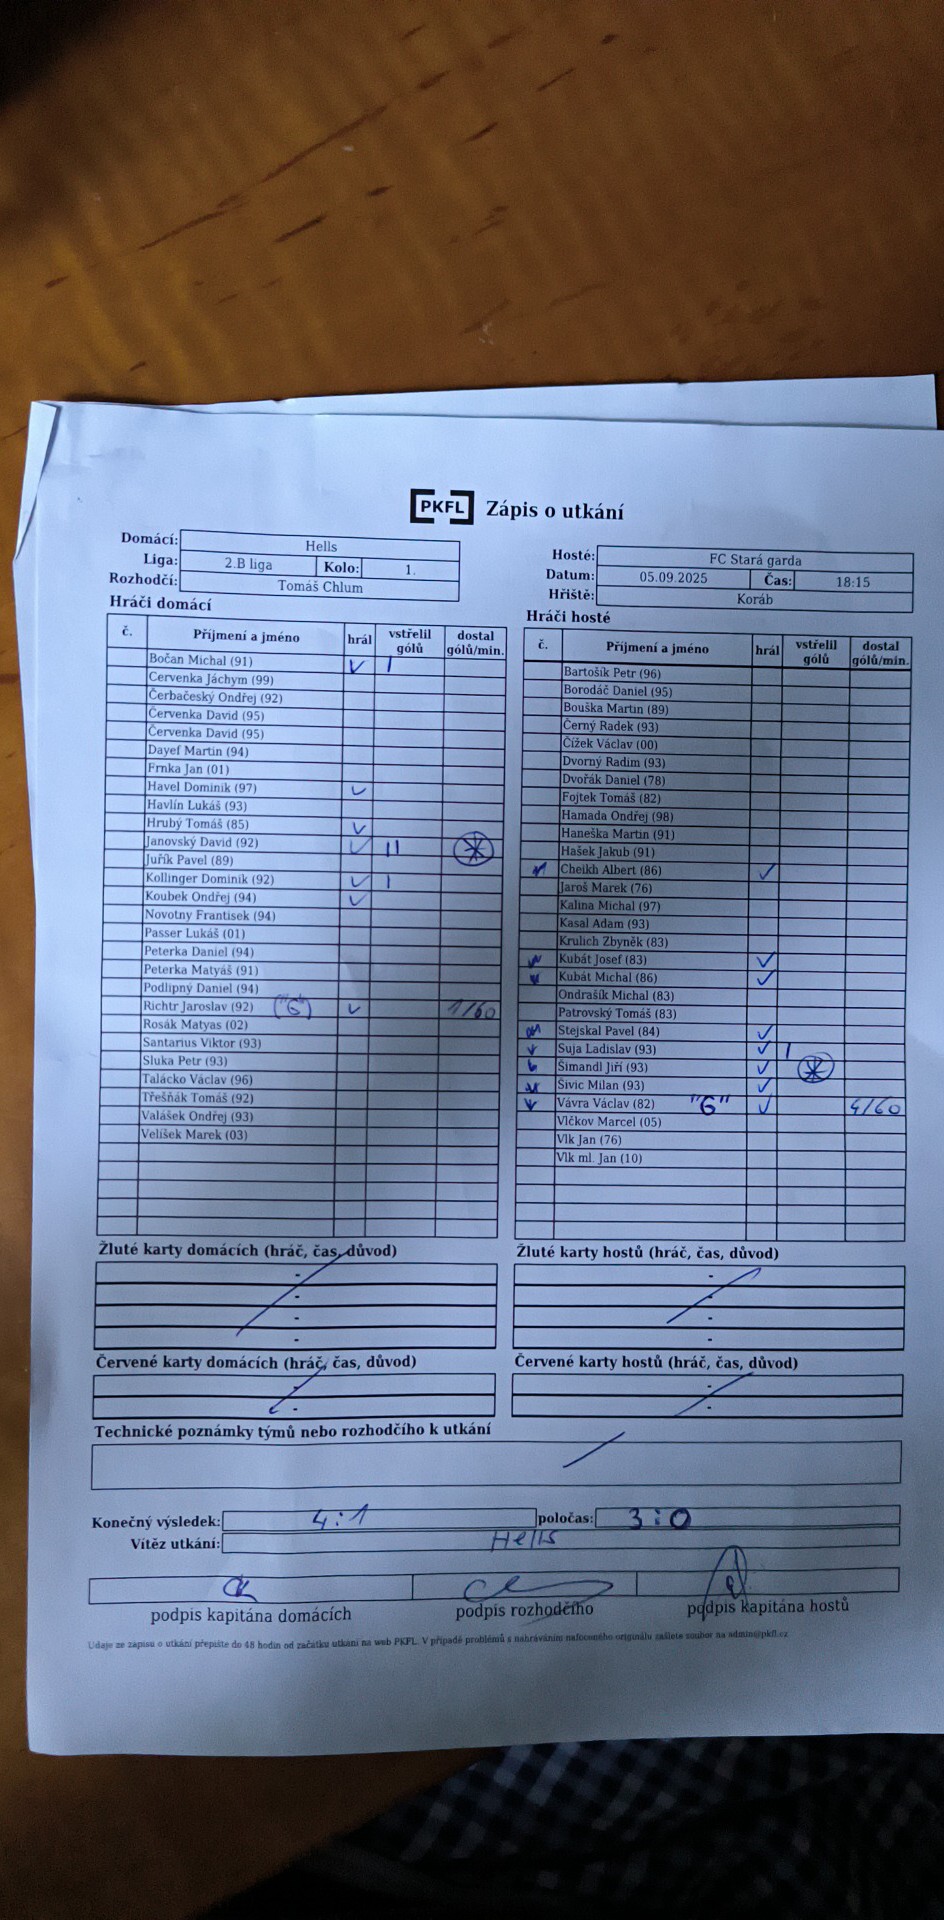 PKFL Zápis o utkání
Domácí: Hells
Liga: 2.B liga Kolo: 1.
Rozhodčí: Tomáš Chlum
Hosté: FC Stará garda
Datum: 05.09.2025 Čas: 18:15
Hřiště: Koráb
Hráči domácí
č. Příjmení a jméno hrál vstřelil gólů dostal gólů/min.
Bočan Michal (91) ✓ I
Červenka Jáchym (99)
Čerbačeský Ondřej (92)
Červenka David (95)
Červenka David (95)
Dayef Martin (94)
Frnka Jan (01)
Havel Dominik (97) ✓
Havlín Lukáš (93)
Hrubý Tomáš (85) ✓
Janovský David (92) ✓ II
Juřík Pavel (89)
Kollinger Dominik (92) ✓ I
Koubek Ondřej (94) ✓
Novotny Frantisek (94)
Passer Lukáš (01)
Peterka Daniel (94)
Peterka Matyáš (91)
Podlipný Daniel (94)
Richtr Jaroslav (92) ("G") ✓ 1/60
Rosák Matyas (02)
Santarius Viktor (93)
Sluka Petr (93)
Talácko Václav (96)
Třešňák Tomáš (92)
Valášek Ondřej (93)
Velíšek Marek (03)
Hráči hosté
č. Příjmení a jméno hrál vstřelil gólů dostal gólů/min.
Bartošík Petr (96)
Borodáč Daniel (95)
Bouška Martin (89)
Černý Radek (93)
Čížek Václav (00)
Dvorný Radim (93)
Dvořák Daniel (78)
Fojtek Tomáš (82)
Hamada Ondřej (98)
Haneška Martin (91)
Hašek Jakub (91)
Cheikh Albert (86) ✓
Jaroš Marek (76)
Kalina Michal (97)
Kasal Adam (93)
Krulich Zbyněk (83)
Kubát Josef (83) ✓
Kubát Michal (86) ✓
Ondrašík Michal (83)
Patrovský Tomáš (83)
Stejskal Pavel (84) ✓
Suja Ladislav (93) ✓ I
Šimandl Jiří (93) ✓
Šivic Milan (93) ✓
Vávra Václav (82) "G" ✓ 4/60
Vlčkov Marcel (05)
Vlk Jan (76)
Vlk ml. Jan (10)
Žluté karty domácích (hráč, čas, důvod)
-
-
-
-
Žluté karty hostů (hráč, čas, důvod)
-
-
-
-
Červené karty domácích (hráč, čas, důvod)
-
-
Červené karty hostů (hráč, čas, důvod)
-
-
Technické poznámky týmů nebo rozhodčího k utkání
Konečný výsledek: 4:1 poločas: 3:0
Vítěz utkání: Hells
podpis kapitána domácích podpis rozhodčího podpis kapitána hostů
Údaje ze zápisu o utkání přepište do 48 hodin od začátku utkání na web PKFL. V případě problémů s nahráváním nafoceného originálu zašlete soubor na admin@pkfl.cz